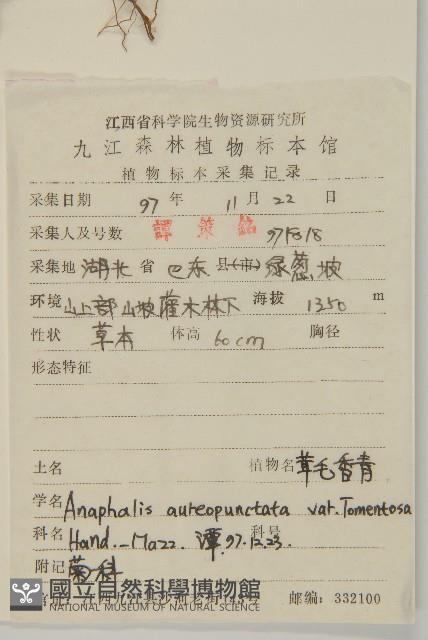 江西省科学院生物资源研究所
九江森林植物标本馆
植物标本采集记录
采集日期 97 年 11 月 22 日
采集人及号数 譚策銘 971818
采集地 湖北 省 巴东 县(市) 绿葱坡
环境 山上部山坡灌木林下 海拔 1350 m
性状 草本 体高 60cm 胸径
形态特征
土名 植物名 茸毛香青
学名 Anaphalis aureopunctata var. Tomentosa
科名 Hand.-Mazz. 潭.97.12.23. 科号
附记 菊科
國立自然科學博物館
NATIONAL MUSEUM OF NATURAL SCIENCE
邮编：332100